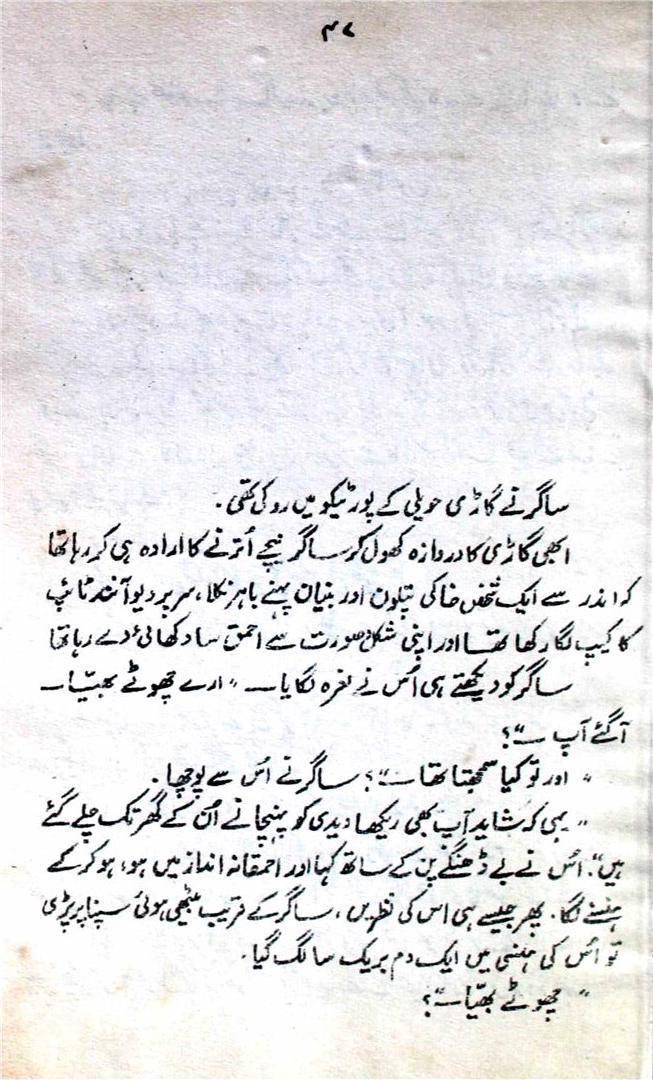 ۴۷
ساگر نے گاڑی حویلی کے پورٹیکو میں روکی تھی۔
ابھی گاڑی کا دروازہ کھول کر ساگر نیچے اُترنے کا ارادہ ہی کر رہا تھا
کہ اندر سے ایک شخص خاکی پتلون اور بنیان پہنے باہر نکلا، سر پر دیو آنند ٹائپ
کا کیپ لگا رکھا تھا اور اپنی شکل صورت سے احمق سا دکھائی دے رہا تھا
ساگر کو دیکھتے ہی اُس نے نعرہ لگایا۔۔ "ارے چھوٹے بھیّا۔۔
آ گئے آپ ۔۔"؟
"اور تو کیا سمجھتا تھا ۔۔"؟ ساگر نے اُس سے پوچھا۔
"یہی کہ شاید آپ بھی ریکھا دیدی کو پہنچانے اُن کے گھر تک چلے گئے
ہیں"۔ اُس نے بے ڈھنگے پن کے ساتھ کہا اور احمقانہ انداز میں ہو، ہو کر کے
ہنسنے لگا۔ پھر جیسے ہی اس کی نظریں، ساگر کے قریب بیٹھی ہوئی سپنا پر پڑی
تو اُس کی ہنسی میں ایک دم بریک سا لگ گیا۔
"چھوٹے بھیّا ۔۔"؟